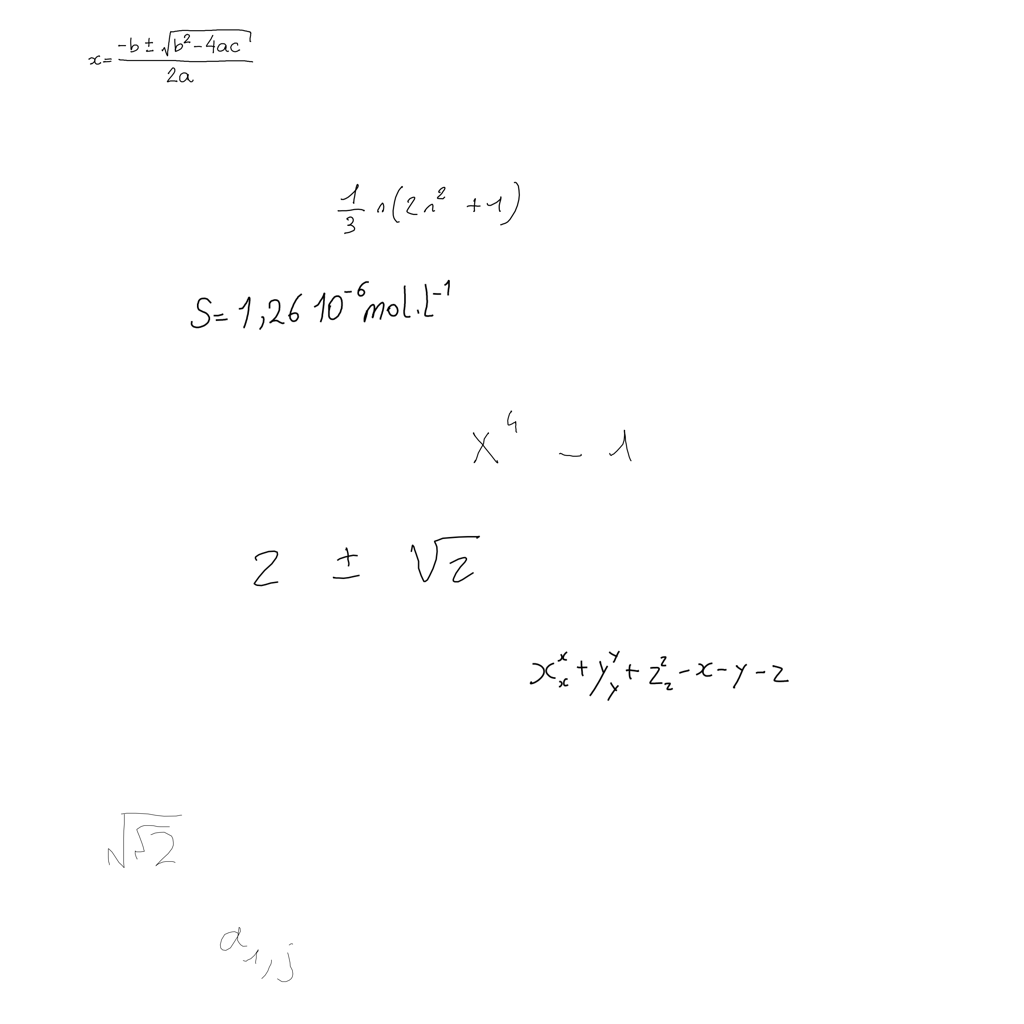 x = \frac{-b \pm \sqrt{b^2 - 4ac}}{2a}
\frac{1}{3} n (2n^2 + 1)
S = 1,26 10^{-6} mol.l^{-1}
x^4 - 1
2 \pm \sqrt{2}
x_x^x + y_y^y + z_z^z - x - y - z
\sqrt{\sqrt{2}}
a_{1,j}